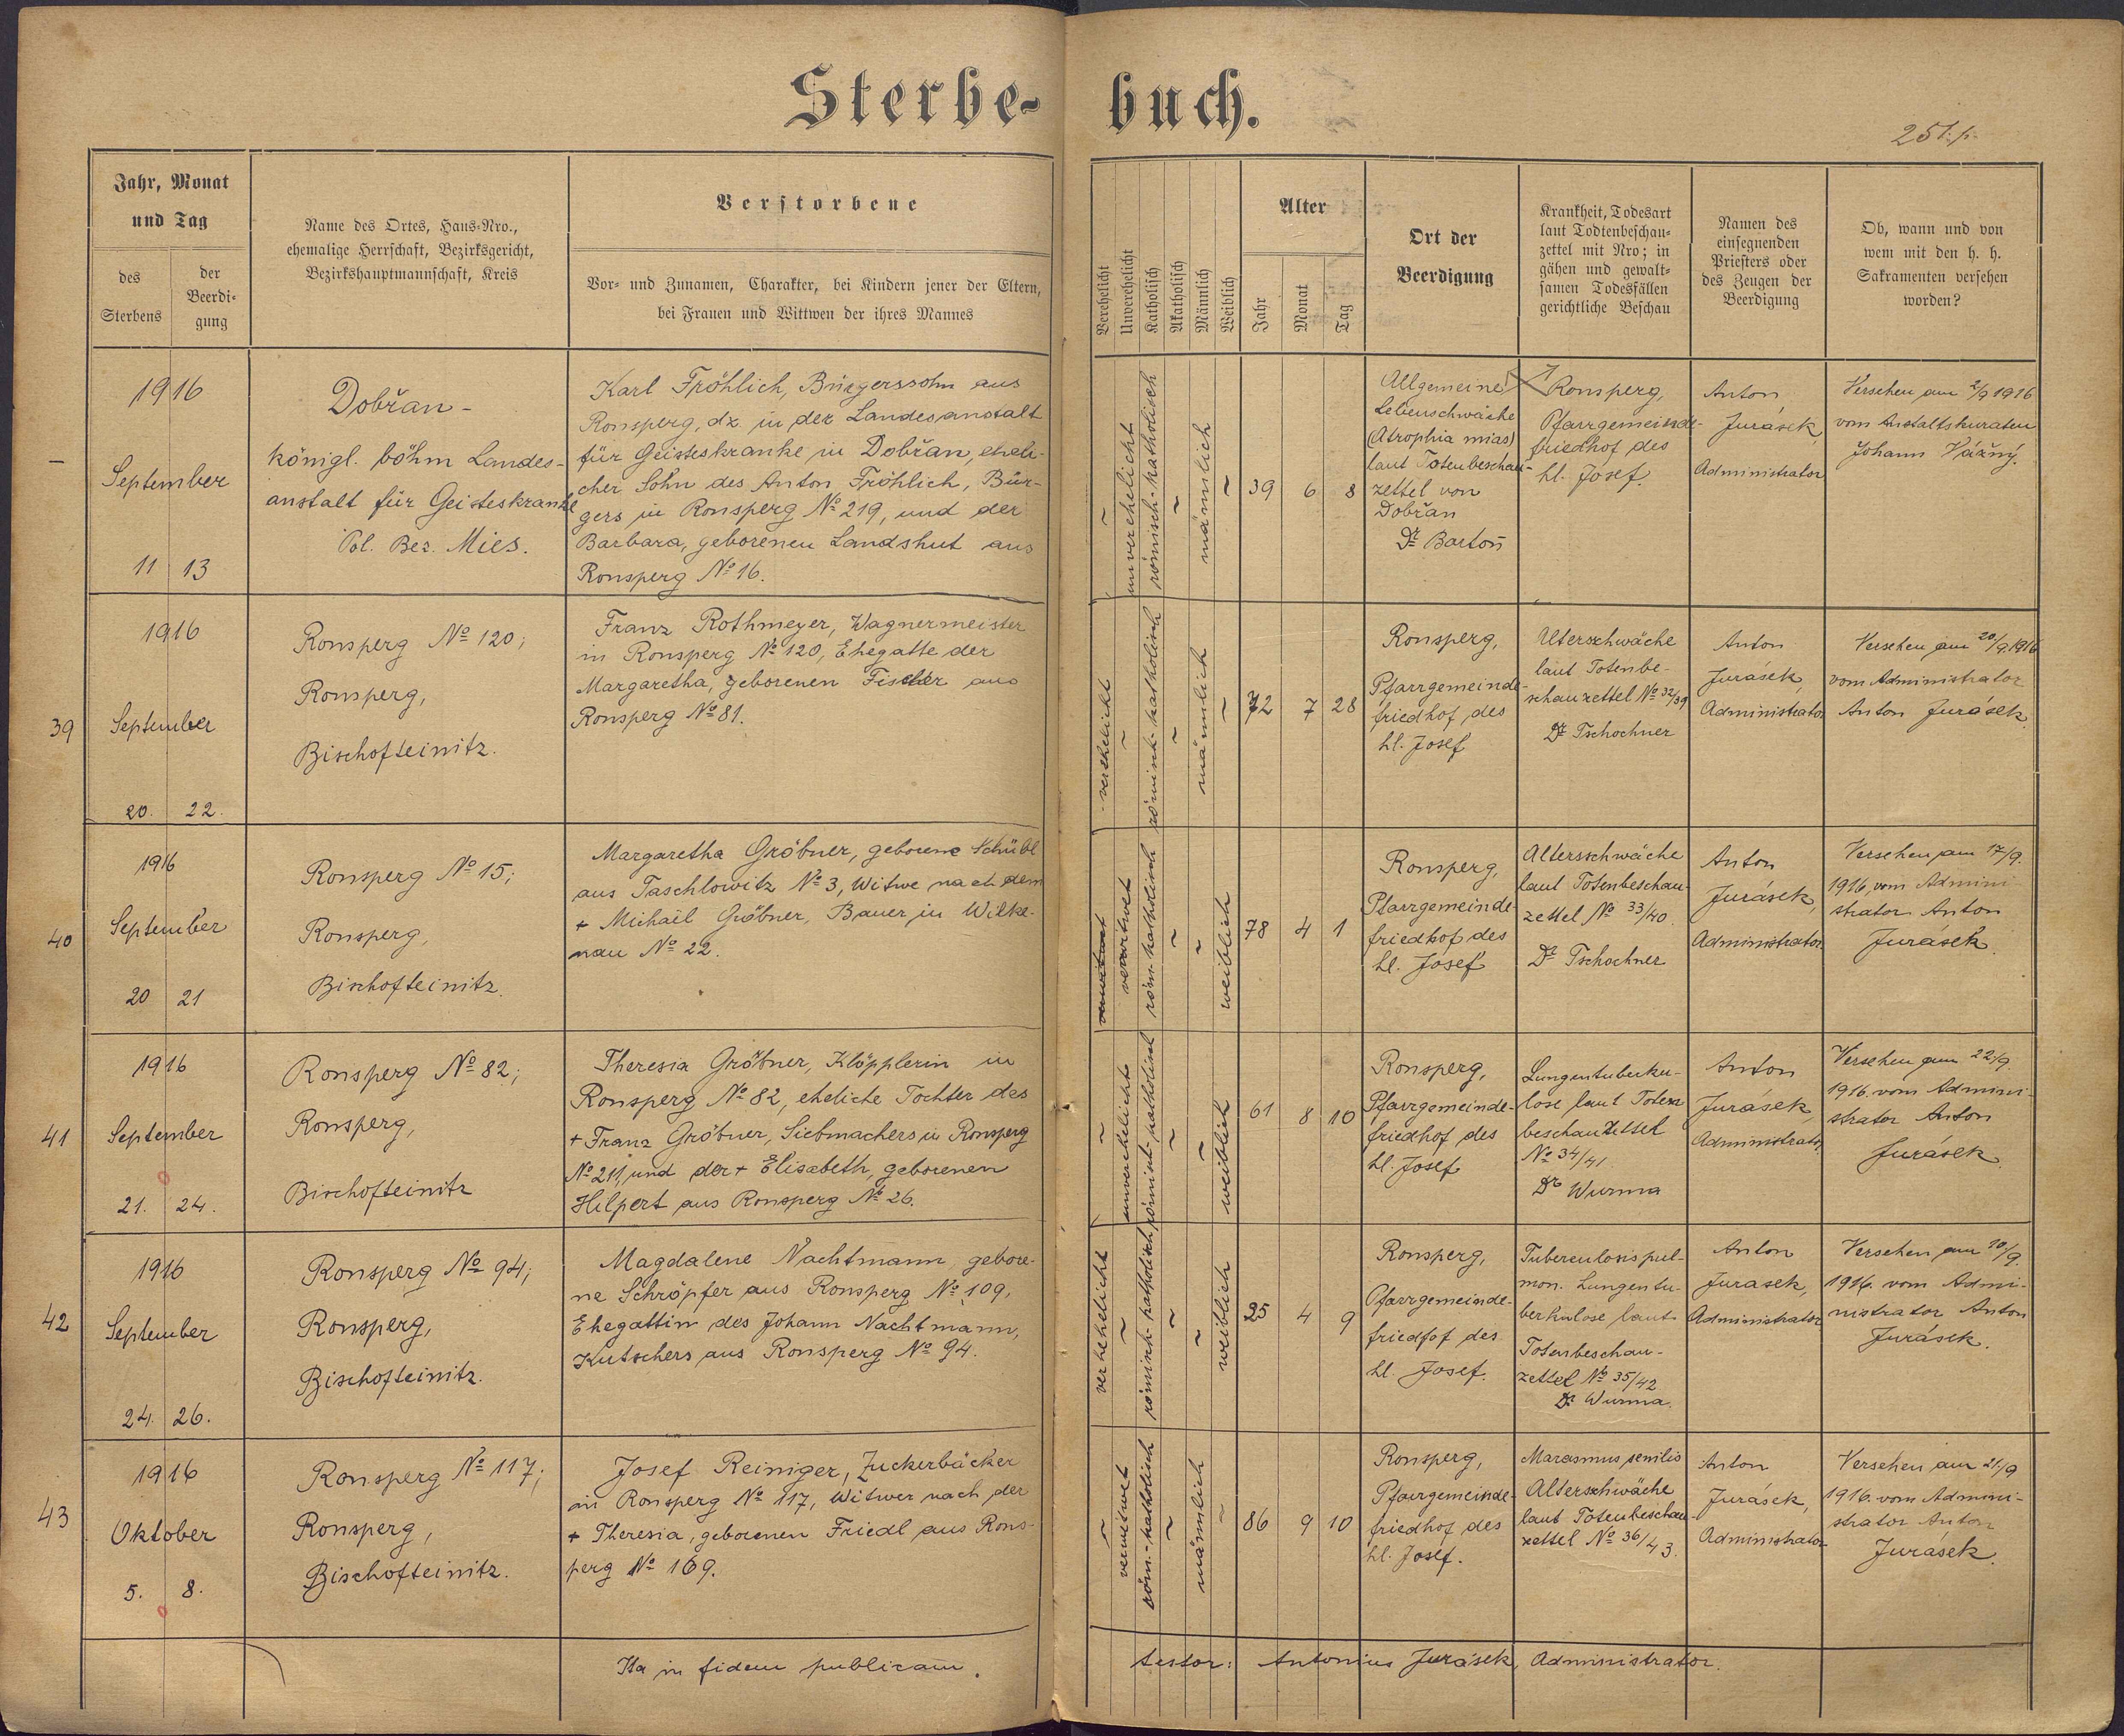 Sterbe-
buch.
251.p.
Jahr, Monat
und Tag
des
Sterbens
der
Beerdi-
gung
Name des Ortes, Haus-Nro.,
ehemalige Herrschaft, Bezirksgericht,
Bezirkshauptmannschaft, Kreis
Verstorbene
Vor- und Zunamen, Charakter, bei Kindern jener der Eltern,
bei Frauen und Wittwen der ihres Mannes
Verehelicht
Unverehelicht
Katholisch
Akatholisch
Männlich
Weiblich
Alter
Jahr
Monat
Tag
Ort der
Beerdigung
Krankheit, Todesart
laut Todtenbeschau-
zettel mit Nro; in
gähen und gewalt-
samen Todesfällen
gerichtliche Beschau
Namen des
einsegnenden
Priesters oder
des Zeugen der
Beerdigung
Ob, wann und von
wem mit den h. h.
Sakramenten versehen
worden?
–
1916
September
11 13
Dobřan-
königl. böhm Landes-
anstalt für Geisteskranke
Pol. Bez. Mies.
Karl Fröhlich, Bürgerssohn aus
Ronsperg, dz in der Landesanstalt
für Geisteskranke in Dobřan, eheli-
cher Sohn des Anton Fröhlich, Bür-
gers in Ronsperg № 219, und der
Barbara, geborenen Landshut aus
Ronsperg № 16.
~
unverehelicht
römisch-katholisch
~
männlich
~
39 6 8
Allgemeine
Lebenschwäche
(Atrophia mias)
laut Totenbeschau-
zettel von
Dobřan
Dr Bartoň
Ronsperg,
Pfarrgemeinde-
friedhof des
hl. Josef.
Anton
Jurásek,
Administrator
Versehen am 2/9 1916
vom Anstaltskuraten
Johann Vážný.
39
1916
September
20. 22.
Ronsperg № 120;
Ronsperg,
Bischofteinitz.
Franz Rothmeyer, Wagnermeister
in Ronsperg № 120, Ehegatte der
Margaretha, geborenen Fischer aus
Ronsperg № 81.
verehelicht
~
römisch-katholisch
~
männlich
~
72 7 28
Ronsperg,
Pfarrgemeinde-
friedhof des
hl. Josef
Alterschwäche
laut Totenbe-
schauzettel № 32/39
Dr Tschochner
Anton
Jurásek,
Administrator
Versehen am 20/9 1916
vom Administrator
Anton Jurásek.
40
1916
September
20 21
Ronsperg № 15;
Ronsperg,
Bischofteinitz.
Margaretha Gröbner, geborene Schübl
aus Taschlowitz № 3, Witwe nach dem
+ Michael Gröbner, Bauer in Wilke-
nau № 22.
verwitwet
verwitwet
röm-katholisch
~
~
weiblich
78 4 1
Ronsperg,
Pfarrgemeinde-
friedhof des
hl. Josef
Altersschwäche
laut Totenbeschau-
zettel № 33/40
Dr Tschochner
Anton
Jurásek,
Administrator
Versehen am 17/9.
1916 vom Admini-
strator Anton
Jurásek.
41
1916
September
21. 24.
Ronsperg № 82;
Ronsperg,
Bischofteinitz
Theresia Gröbner, Klöpplerin in
Ronsperg № 82, eheliche Tochter des
+ Franz Gröbner, Siebmachers in Ronsperg
№ 211, und der + Elisabeth, geborenen
Hilpert aus Ronsperg № 26.
~
unverehelicht
römisch-katholisch
~
~
weiblich
61 8 10
Ronsperg,
Pfarrgemeinde-
friedhof des
hl. Josef
Lungentuberku-
lose laut Toten
beschauzettel
№ 34/41
Dr Wurma
Anton
Jurásek,
Administrator
Versehen am 22/9.
1916. vom Admini-
strator Anton
Jurásek.
42
1916
September
24. 26.
Ronsperg № 94;
Ronsperg,
Bischofteinitz.
Magdalene Nachtmann, gebore-
ne Schröpfer aus Ronsperg № 109,
Ehegattin des Johann Nachtmann,
Kutschers aus Ronsperg № 94.
verehelicht
~
römisch-katholisch
~
~
weiblich
35 4 9
Ronsperg,
Pfarrgemeinde-
friedhof des
hl. Josef.
Tuberculosis pul-
mon. Lungentu-
berkulose laut
Totenbeschau-
zettel № 35/42
Dr Wurma.
Anton
Jurasek,
Administrator
Versehen am 10/9.
1916. vom Admi-
nistrator Anton
Jurásek.
43
1916
Oktober
5. 8.
Ronsperg № 117;
Ronsperg,
Bischofteinitz.
Josef Reiniger, Zuckerbäcker
in Ronsperg № 117, Witwer nach der
+ Theresia, geborenen Friedl aus Rons-
perg № 169.
~
verwitwet
röm.-katholisch
~
männlich
~
86 9 10
Ronsperg,
Pfarrgemeinde-
friedhof des
hl. Josef.
Marasmus senilis
Alterschwäche
laut Totenbeschau-
zettel № 36/43.
Anton
Jurásek,
Administrator
Versehen am 21/9
1916. vom Admini-
strator Anton
Jurásek.
Ita in fidem publicam.
testor: Antonius Jurásek, Administrator.